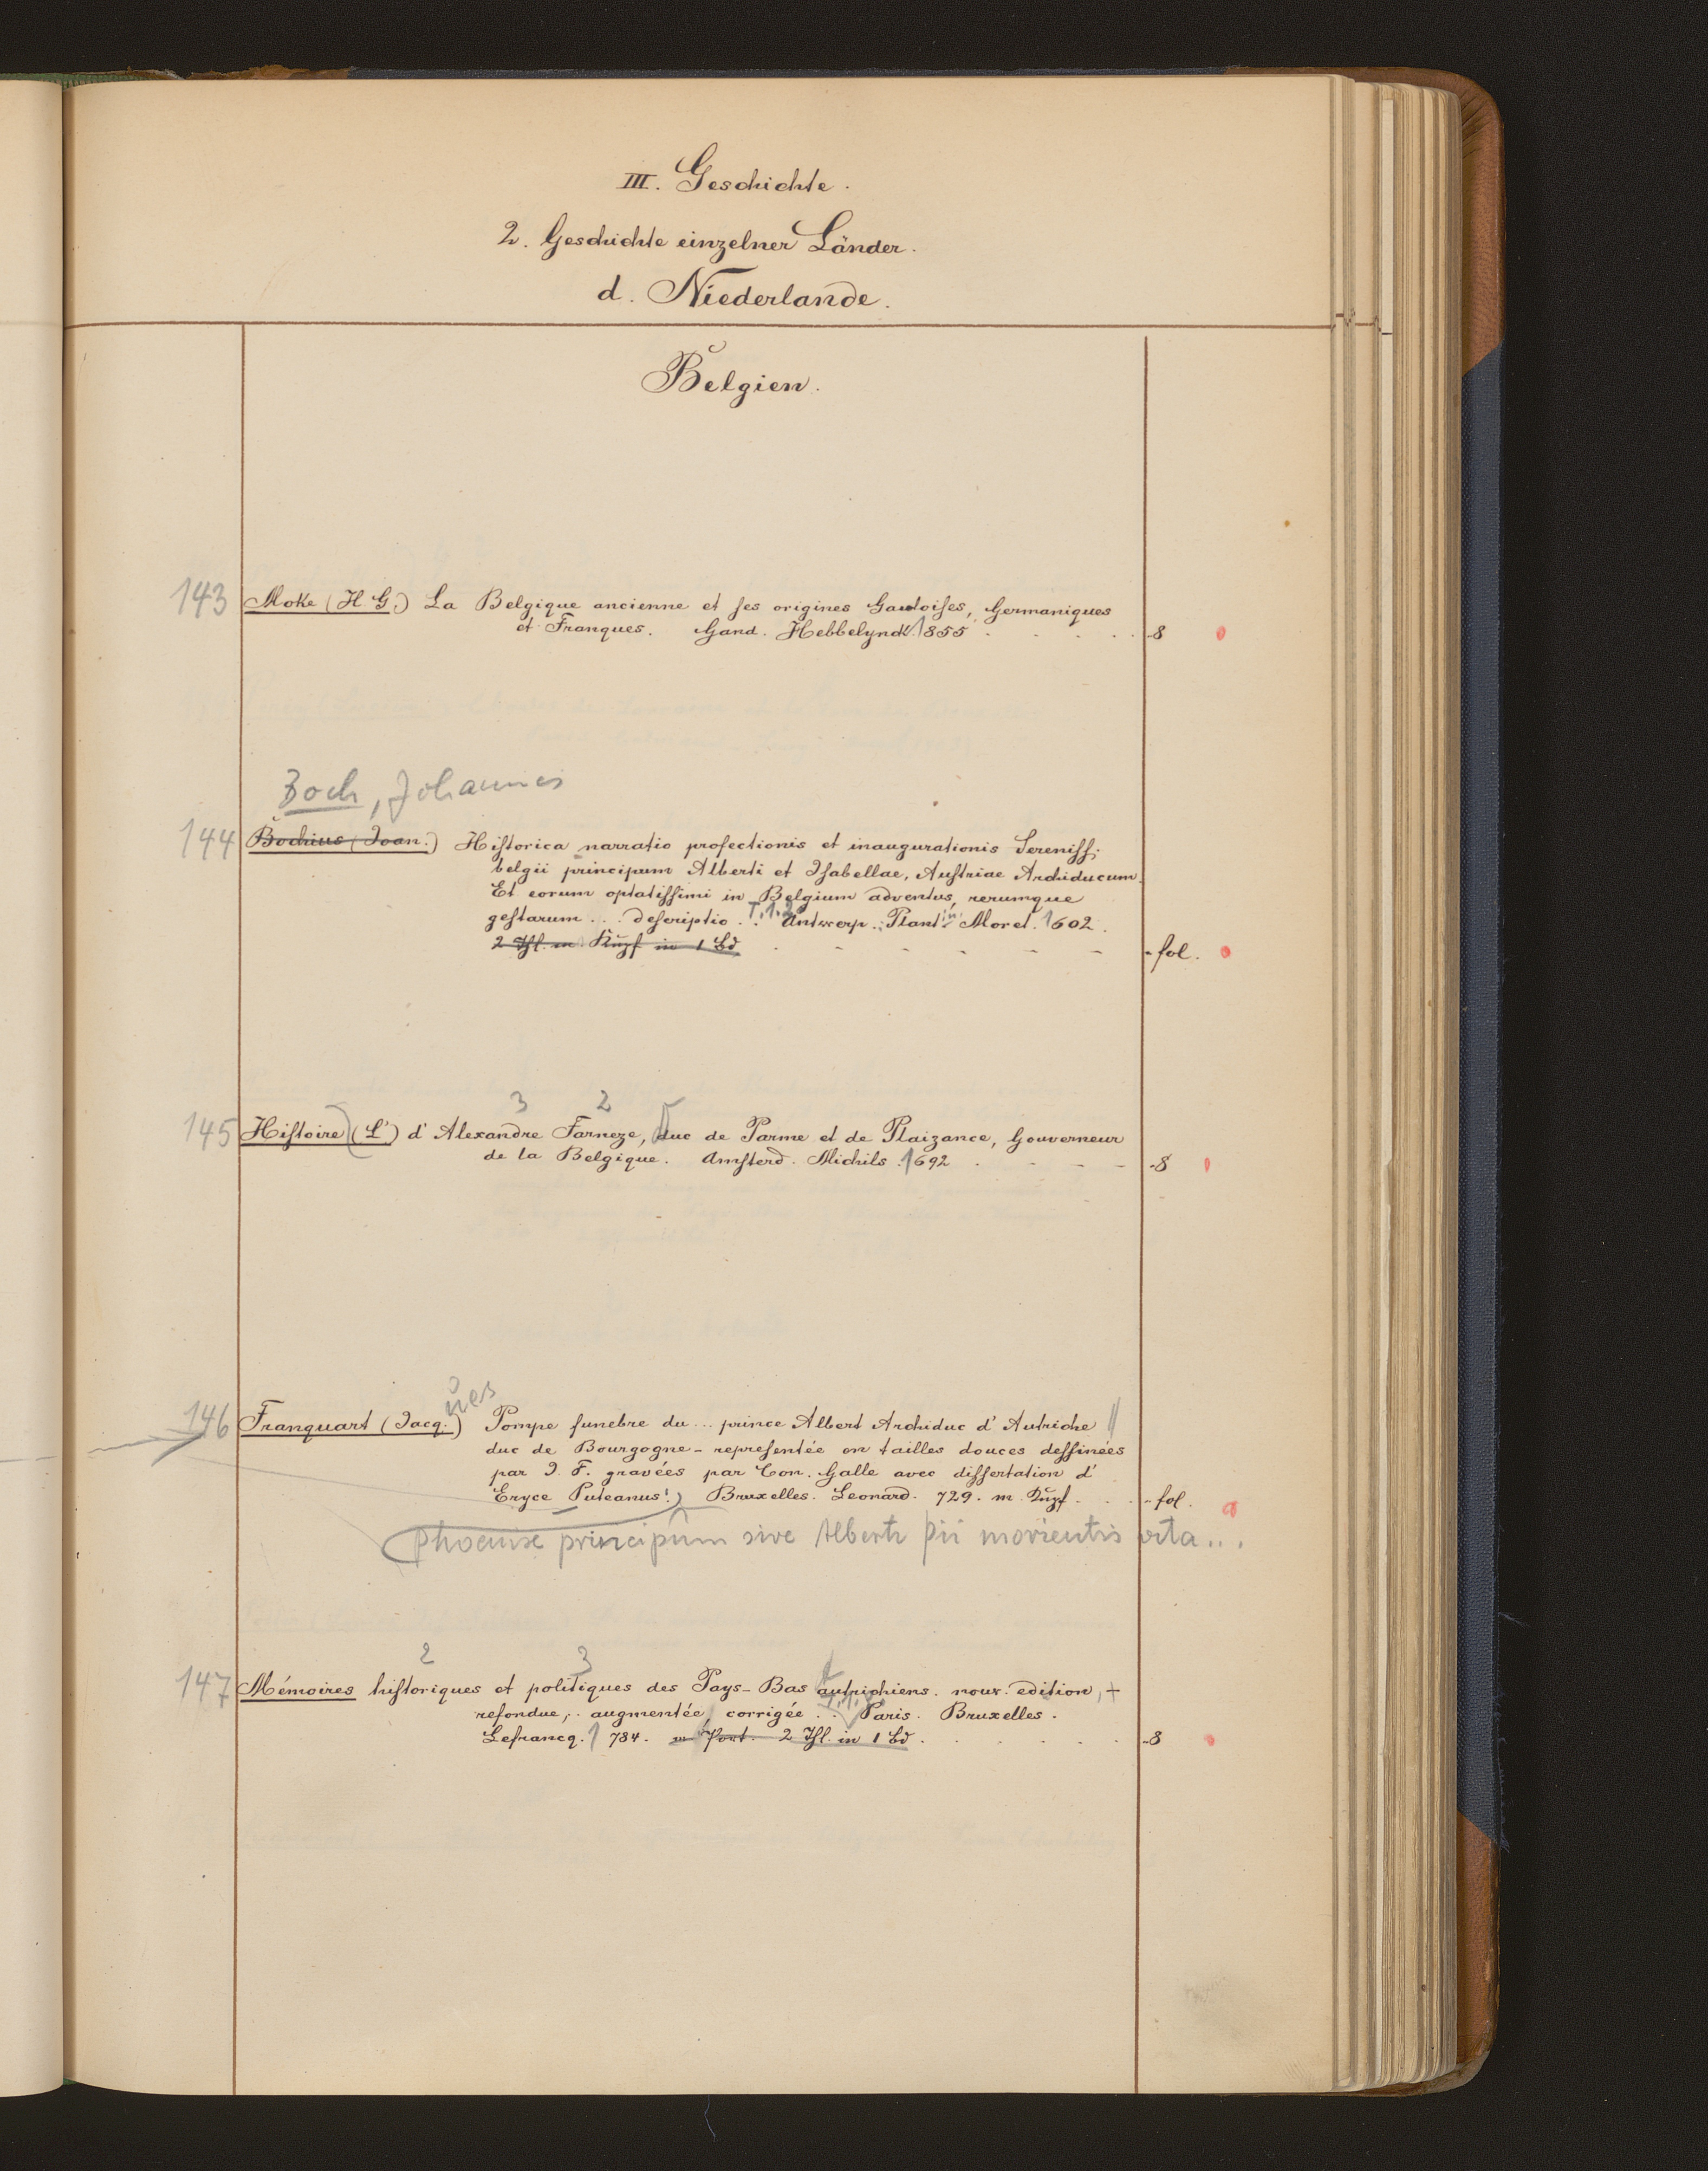 III. Geschichte.
2. Geschichte einzelner Länder.
d. Niederlande.
Belgien.
143 Moke (H G.) La Belgique ancienne et ses origines Gauloises, Germaniques
et Franques. Gand. Hebbelynck 1855 . . . . . 8
Boch, Johannes
144 Bochius (Joan.) Historica narratio profectionis et inaugurationis Sereniss.
belgii principum Alberti et Isabellae, Austriae Archiducum.
Et eorum optatissimi in Belgium adventus, rerumque
gestarum ... descriptio . . T. 1.2 Antwerp. Plantin Moret. 1602.
2 Thl. m. Kupf in 1 Bd . - - - - - fol.
3 2
145 Histoire (L') d'Alexandre Farneze, duc de Parme et de Plaizance, Gouverneur
de la Belgique. Amsterd. Michils. 1692 . . - - - 8
146 Franquart (Jacq.ues) Pompe funebre du ... prince Albert Archiduc d'Autriche //
duc de Bourgogne - representée en tailles douces dessinées
par J. F. gravées par Con. Galle avec dissertation d'
Eryce Puteanus!) Bruxelles. Leonard. 729. m. Kupf. . . . fol.
Phoenix principum sive Alberti pii morientis vita...
2 3
147 Mémoires historiques et politiques des Pays-Bas autrichiens. nouv. edition, +
refondue, augmentée, corrigée . . Paris. Bruxelles.
Lefrancq. 1784. m Port. 2 Thl. in 1 Bd . . . . . . 8